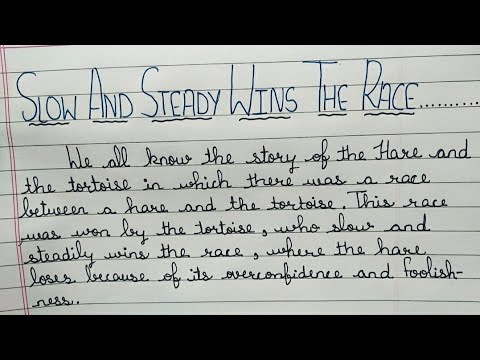 SLOW AND STEADY WINS THE RACE...........
We all know the story of the Hare and
the tortoise in which there was a race
between a hare and the tortoise. This race
was won by the tortoise, who slow and
steadily wins the race, where the hare
loses because of its overconfidence and foolish-
ness.